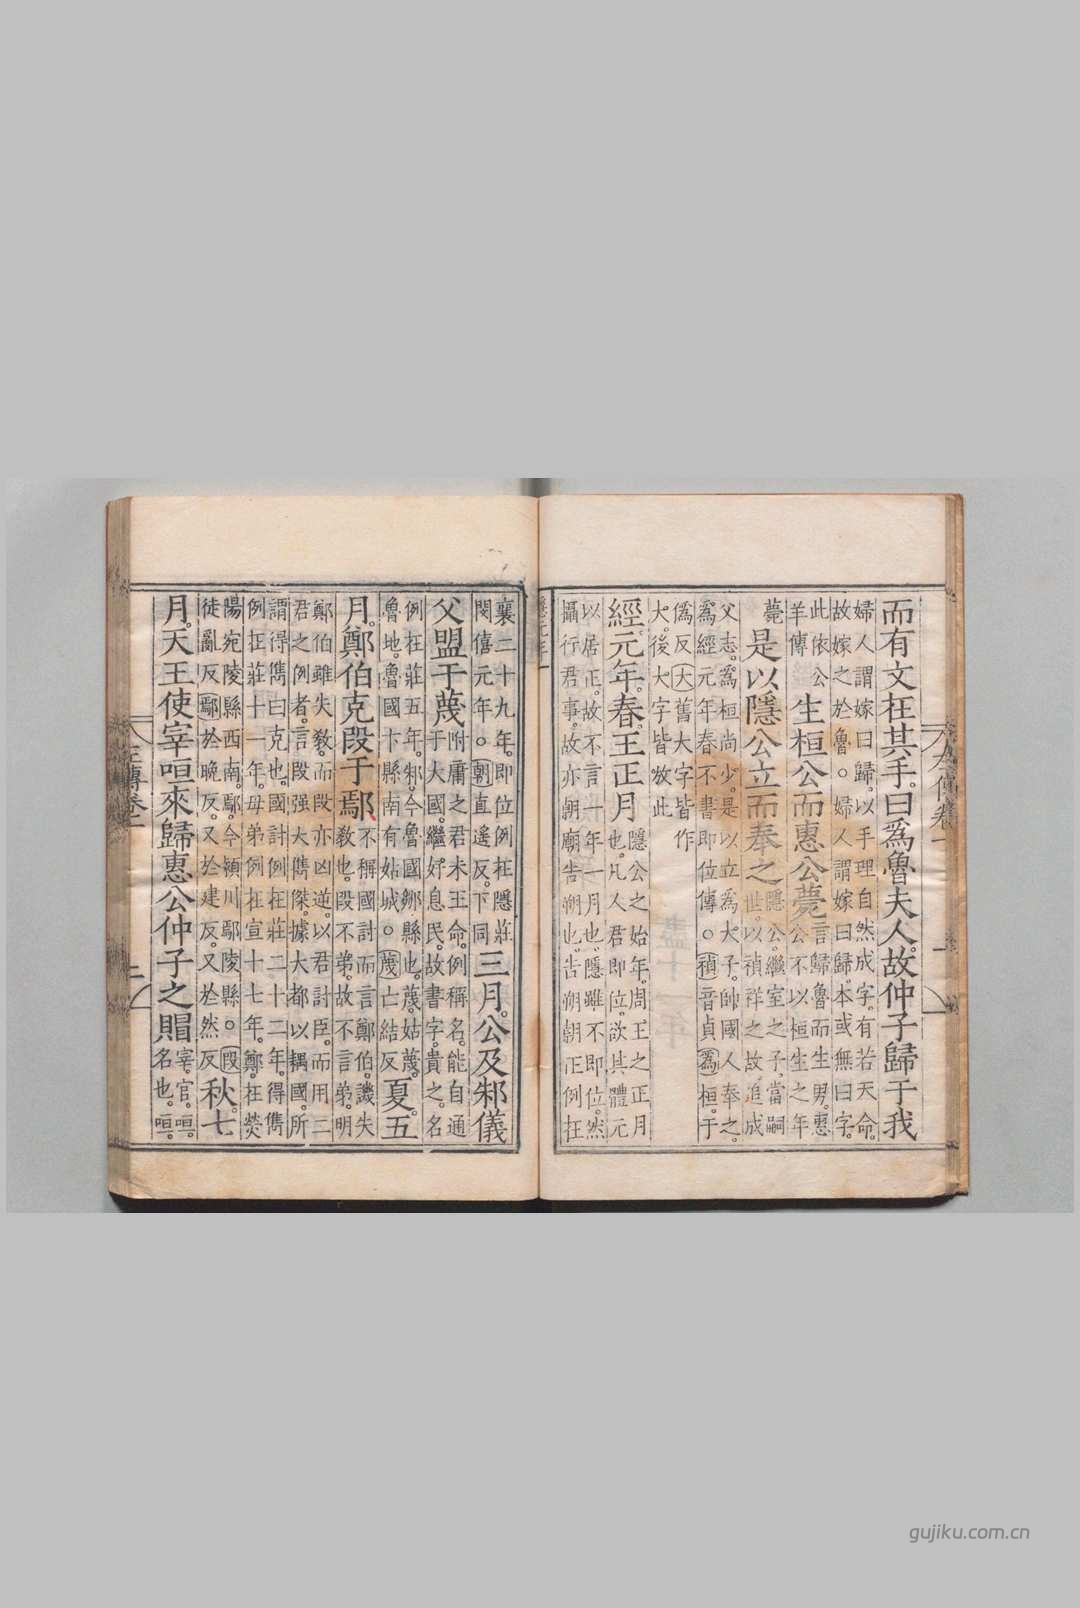 而有文在其手。曰爲魯夫人。故仲子歸于我
婦人謂嫁曰歸。以手理自然成字。有若天命。
故嫁之於魯。○婦人謂嫁曰歸。本或無曰字。
此依公
羊傳
生桓公而惠公薨
言歸魯而生男。惠
公不以桓生之年
薨
是以隱公立而奉之
隱公。繼室之子。當嗣
世。以禎祥之故。追成
父志。爲桓尚少。是以立爲大子。帥國人奉之。
爲經元年春不書即位傳。○禎音貞爲桓。于
僞反大舊大字皆作
大。後大字皆放此
經。元年。春。王正月
隱公之始年。周王之正月
也。凡人君即位。欲其體元
以居正。故不言一年一月也。隱雖不即位。然
攝行君事。故亦朝廟告朔也。告朔朝正例在
襄二十九年。即位例在隱莊
閔僖元年○朝直遥反。下同
三月。公及邾儀
父盟于蔑
附庸之君。未王命。例稱名。能自通
于大國。繼好息民。故書字。貴之。名
例在莊五年。邾今魯國鄒縣也。蔑。姑蔑。
魯地。魯國卞縣南有姑城。○蔑亡結反
夏。五
月。鄭伯克段于鄢
不稱國討而言鄭伯。譏失
教也。段不弟。故不言弟。明
鄭伯雖失教。而段亦凶逆。以君討臣。而用二
君之例者。言段強大儁傑。據大都以耦國。所
謂得儁曰克也。國討例在莊二十二年。得儁
例在莊十一年。母弟例在宣十七年。鄭在滎
陽宛陵縣西南。鄢。今潁川鄢陵縣。○段
徒亂反鄢於晚反。又於建反。又於然反
秋。七
月。天王使宰咺來歸惠公仲子之賵
宰。官。咺。
名也。咺。
隱元年
左傳卷一
gujiku.com.cn